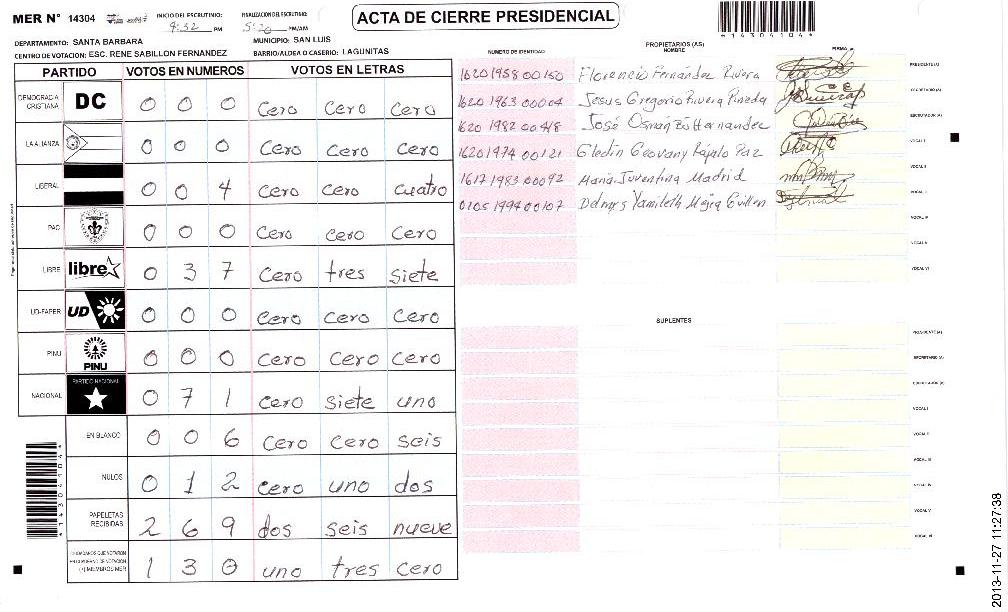 MER N° 14304
INICIO DEL ESCRUTINIO:
4:32 PM
FINALIZACION DEL ESCRUTINIO:
5:20 PM/AM
ACTA DE CIERRE PRESIDENCIAL
41430410 44
DEPARTAMENTO: SANTA BARBARA
MUNICIPIO: SAN LUIS
CENTRO DE VOTACION: ESC. RENE SABILLON FERNANDEZ
BARRIO/ALDEA O CASERIO: LAGUNITAS
PARTIDO VOTOS EN NUMEROS VOTOS EN LETRAS
DEMOCRACIA CRISTIANA DC 0 0 0 Cero Cero Cero
LA ALIANZA 0 0 0 Cero Cero Cero
LIBERAL 0 0 4 Cero Cero Cuatro
PAC 0 0 0 Cero Cero Cero
LIBRE libre 0 3 7 Cero tres siete
UD-FAPER UD 0 0 0 Cero Cero Cero
PINU PINU 0 0 0 Cero Cero Cero
NACIONAL PARTIDO NACIONAL 0 7 1 Cero siete uno
EN BLANCO 0 0 6 Cero Cero seis
NULOS 0 1 2 Cero uno dos
PAPELETAS RECIBIDAS 2 6 9 dos seis nueve
CIUDADANOS QUE VOTARON EN CUADERNO DE VOTACION (+) MIEMBROS MER 1 3 0 uno tres cero
PROPIETARIOS (AS)
NUMERO DE IDENTIDAD NOMBRE FIRMA
1620 1958 00150 Florencio Fernández Rivera PRESIDENTE(A)
1620 1963 00004 Jesus Gregorio Rivera Pineda SECRETARIO (A)
1620 1982 00418 José Osmán Hernandez ESCRUTADOR (A)
1620 1974 00121 Gledin Geovany Paz VOCAL I
1617 1983 00092 Maria Juventina Madrid VOCAL II
0105 1994 00107 Yamileth Mejia Guillen
VOCAL IV
VOCAL V
VOCAL VI
SUPLENTES
PRESIDENTE(A)
SECRETARIO (A)
ESCRUTADOR (A)
VOCAL I
VOCAL II
VOCAL III
VOCAL IV
VOCAL V
VOCAL VI
2013-11-27 11:27:38